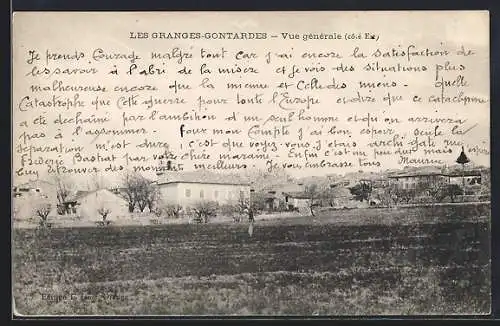 LES GRANGES-GONTARDES – Vue générale (côté Est)
Je prends Courage malgré tout Car j'ai encore la Satisfaction de
les savoir à l'abri de la misère et je vois des Situations plus
malheureuse encore que la mienne et Celle des miens. quelle
Catastrophe que Cette guerre pour toute l'Europe et dire que ce cataclysme
a été dechainé par l'ambition d'un seul homme et qu'on arrivera
pas à l'assommer. Pour mon Compte j'ai bon espoir, seule la
Séparation m'est dure, c'est que voyez-vous j'étais
par votre chère maraine. Enfin c'est un peu dur mais
meilleurs. Je vous embrasse tous Maurice